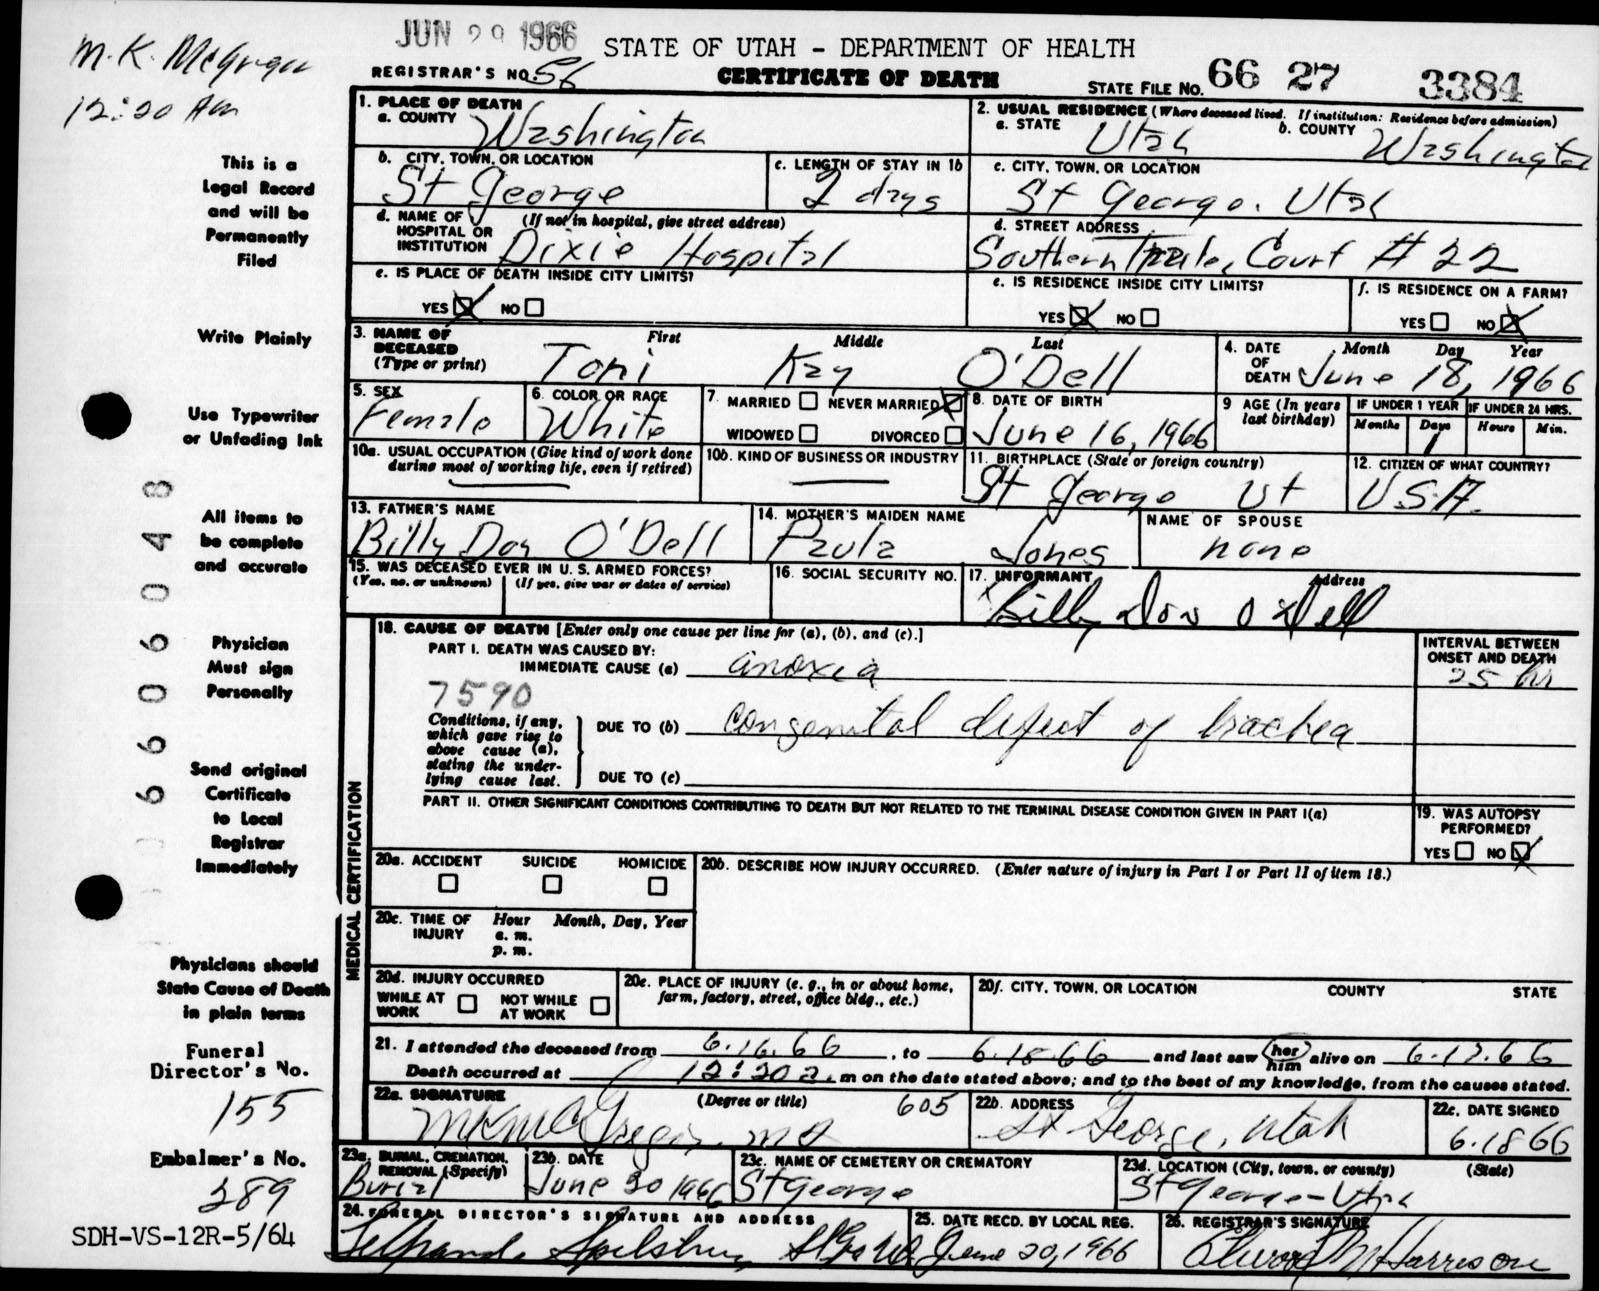 JUN 29 1966
STATE OF UTAH - DEPARTMENT OF HEALTH
M.K. McGregor
12:20 AM
REGISTRAR'S NO. 56
CERTIFICATE OF DEATH
STATE FILE NO. 66 27 3384
1. PLACE OF DEATH
a. COUNTY Washington
2. USUAL RESIDENCE (Where deceased lived. If institution: Residence before admission)
a. STATE Utah b. COUNTY Washington
b. CITY, TOWN, OR LOCATION St George
c. LENGTH OF STAY IN 1b 2 days
c. CITY, TOWN, OR LOCATION St George. Utah
d. NAME OF HOSPITAL OR INSTITUTION (If not in hospital, give street address) Dixie Hospital
d. STREET ADDRESS Southern Trailer Court # 22
e. IS PLACE OF DEATH INSIDE CITY LIMITS?
YES X NO
e. IS RESIDENCE INSIDE CITY LIMITS?
YES X NO
f. IS RESIDENCE ON A FARM?
YES NO X
3. NAME OF DECEASED (Type or print)
First Middle Last
Toni Kay O'Dell
4. DATE OF DEATH Month Day Year
June 18, 1966
5. SEX Female
6. COLOR OR RACE White
7. MARRIED NEVER MARRIED X
WIDOWED DIVORCED
8. DATE OF BIRTH June 16, 1966
9 AGE (In years last birthday)
IF UNDER 1 YEAR Months Days 1
IF UNDER 24 HRS. Hours Min.
10a. USUAL OCCUPATION (Give kind of work done during most of working life, even if retired)
10b. KIND OF BUSINESS OR INDUSTRY
11. BIRTHPLACE (State or foreign country) St George Ut
12. CITIZEN OF WHAT COUNTRY? U.S.A.
13. FATHER'S NAME Billy Don O'Dell
14. MOTHER'S MAIDEN NAME Paula Jones
NAME OF SPOUSE none
15. WAS DECEASED EVER IN U.S. ARMED FORCES?
(Yes, no, or unknown) (If yes, give war or dates of service)
16. SOCIAL SECURITY NO.
17. INFORMANT Address
Billy Don O'Dell
18. CAUSE OF DEATH [Enter only one cause per line for (a), (b), and (c).]
PART I. DEATH WAS CAUSED BY:
IMMEDIATE CAUSE (a) anoxia
INTERVAL BETWEEN ONSET AND DEATH
25 hr
7590
Conditions, if any, which gave rise to above cause (a), stating the underlying cause last.
DUE TO (b) congenital defect of trachea
DUE TO (c)
PART II. OTHER SIGNIFICANT CONDITIONS CONTRIBUTING TO DEATH BUT NOT RELATED TO THE TERMINAL DISEASE CONDITION GIVEN IN PART I(a)
19. WAS AUTOPSY PERFORMED?
YES NO X
MEDICAL CERTIFICATION
20a. ACCIDENT SUICIDE HOMICIDE
20b. DESCRIBE HOW INJURY OCCURRED. (Enter nature of injury in Part I or Part II of item 18.)
20c. TIME OF INJURY Hour Month, Day, Year
a. m.
p. m.
20d. INJURY OCCURRED
WHILE AT WORK NOT WHILE AT WORK
20e. PLACE OF INJURY (e. g., in or about home, farm, factory, street, office bldg., etc.)
20f. CITY, TOWN, OR LOCATION COUNTY STATE
21. I attended the deceased from 6.16.66, to 6.18.66 and last saw her him alive on 6.17.66
Death occurred at 12:20 a. m on the date stated above; and to the best of my knowledge, from the causes stated.
22a. SIGNATURE (Degree or title) 605
MK McGregor MD
22b. ADDRESS St George, Utah
22c. DATE SIGNED 6.18 66
23a. BURIAL, CREMATION, REMOVAL (Specify) Burial
23b. DATE June 20 1966
23c. NAME OF CEMETERY OR CREMATORY St George
23d. LOCATION (City, town, or county) (State)
St George - Utah
24. FUNERAL DIRECTOR'S SIGNATURE AND ADDRESS
Spilsbury
25. DATE RECD. BY LOCAL REG. June 20, 1966
26. REGISTRAR'S SIGNATURE
Harrison
This is a
Legal Record
and will be
Permanently
Filed
Write Plainly
Use Typewriter
or Unfading Ink
All items to
be complete
and accurate
Physician
Must sign
Personally
Send original
Certificate
to Local
Registrar
Immediately
Physicians should
State Cause of Death
in plain terms
Funeral
Director's No.
155
Embalmer's No.
289
SDH-VS-12R-5/64
66 06048